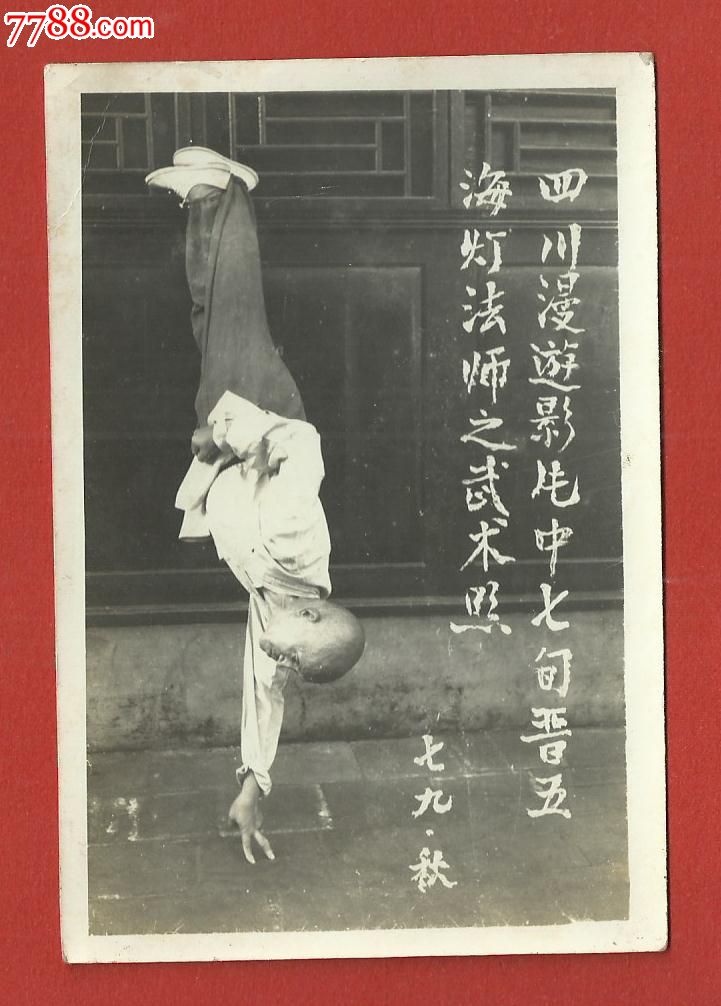 7788.com
四川漫遊影片中七旬晋五
海灯法师之武术照
七九·秋